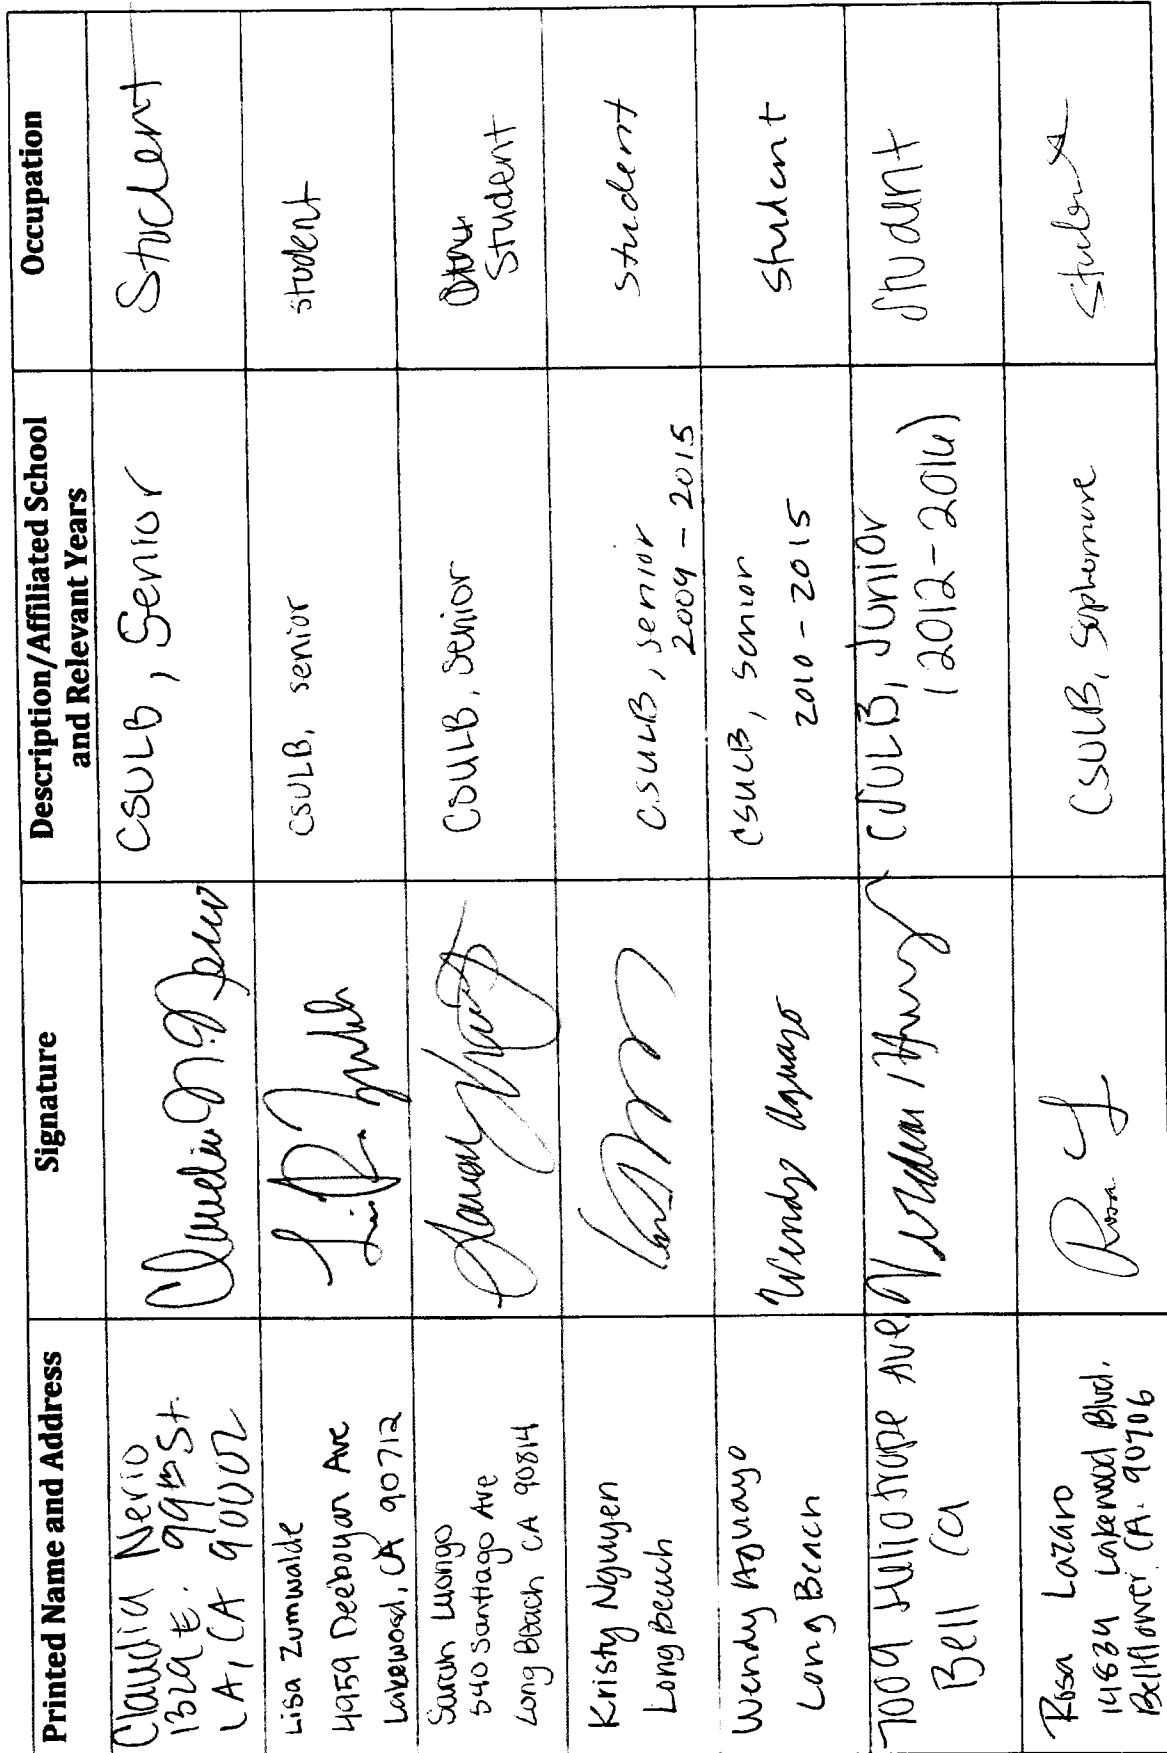 Printed Name and Address
Signature
Description/Affiliated School
and Relevant Years
Occupation
Claudia Nerio
1329 E. 99th St.
LA, CA 90002
CSULB, Senior
Student
Lisa Zumwalde
4959 Deeboyar Ave
Lakewood, CA 90712
CSULB, senior
student
Sarah Luongo
540 Santiago Ave
Long Beach CA 90814
CSULB, Senior
Student
Kristy Nguyen
Long Beach
CSULB, senior
2009 - 2015
student
Wendy Aguayo
Long Beach
Wendy Aguayo
CSULB, senior
2010 - 2015
Student
7009 Heliotrope Ave
Bell Ca
CSULB, Junior
(2012-2016)
Student
Rosa Lazaro
14834 Lakewood Blvd.
Bellflower CA. 90706
Rosa L
CSULB, Sophomore
Student